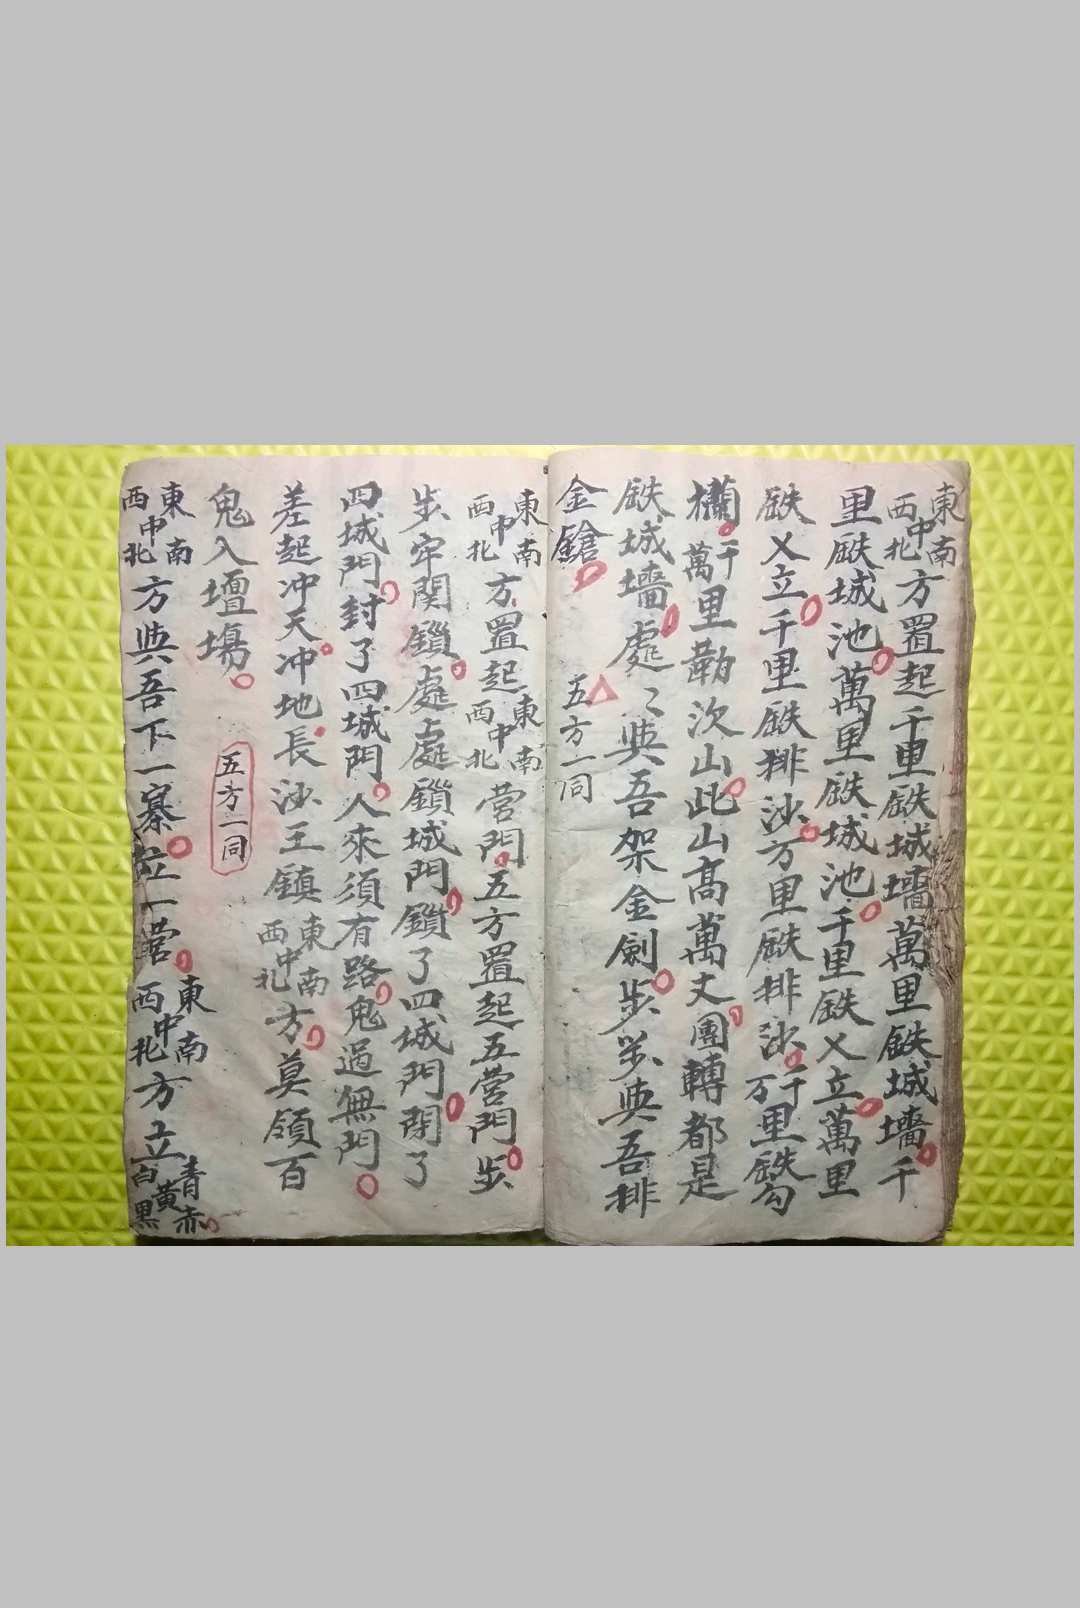 東南中西北方置起千里鉄城墻萬里鉄城墻千
里鉄城池萬里鉄城池千里鉄乂立萬里
鉄乂立千里鉄排沙万里鉄排沙千万里鉄勾
欄千萬里勒次山此山高萬丈團轉都是
鉄城墻處〻與吾架金劍步岁與吾排
金鎗 五方一同
東南中西北方置起東南中西北營門五方置起五營門步
步牢関鎖處處鎖城門鎖了四城門閉了
四城門封了四城門人來須有路鬼過無門
差起冲天冲地長沙王鎮東南中西北方莫領百
鬼入壇場 五方一同
東南中西北方與吾下一寨立一營東南中西北方立青赤黃白黑